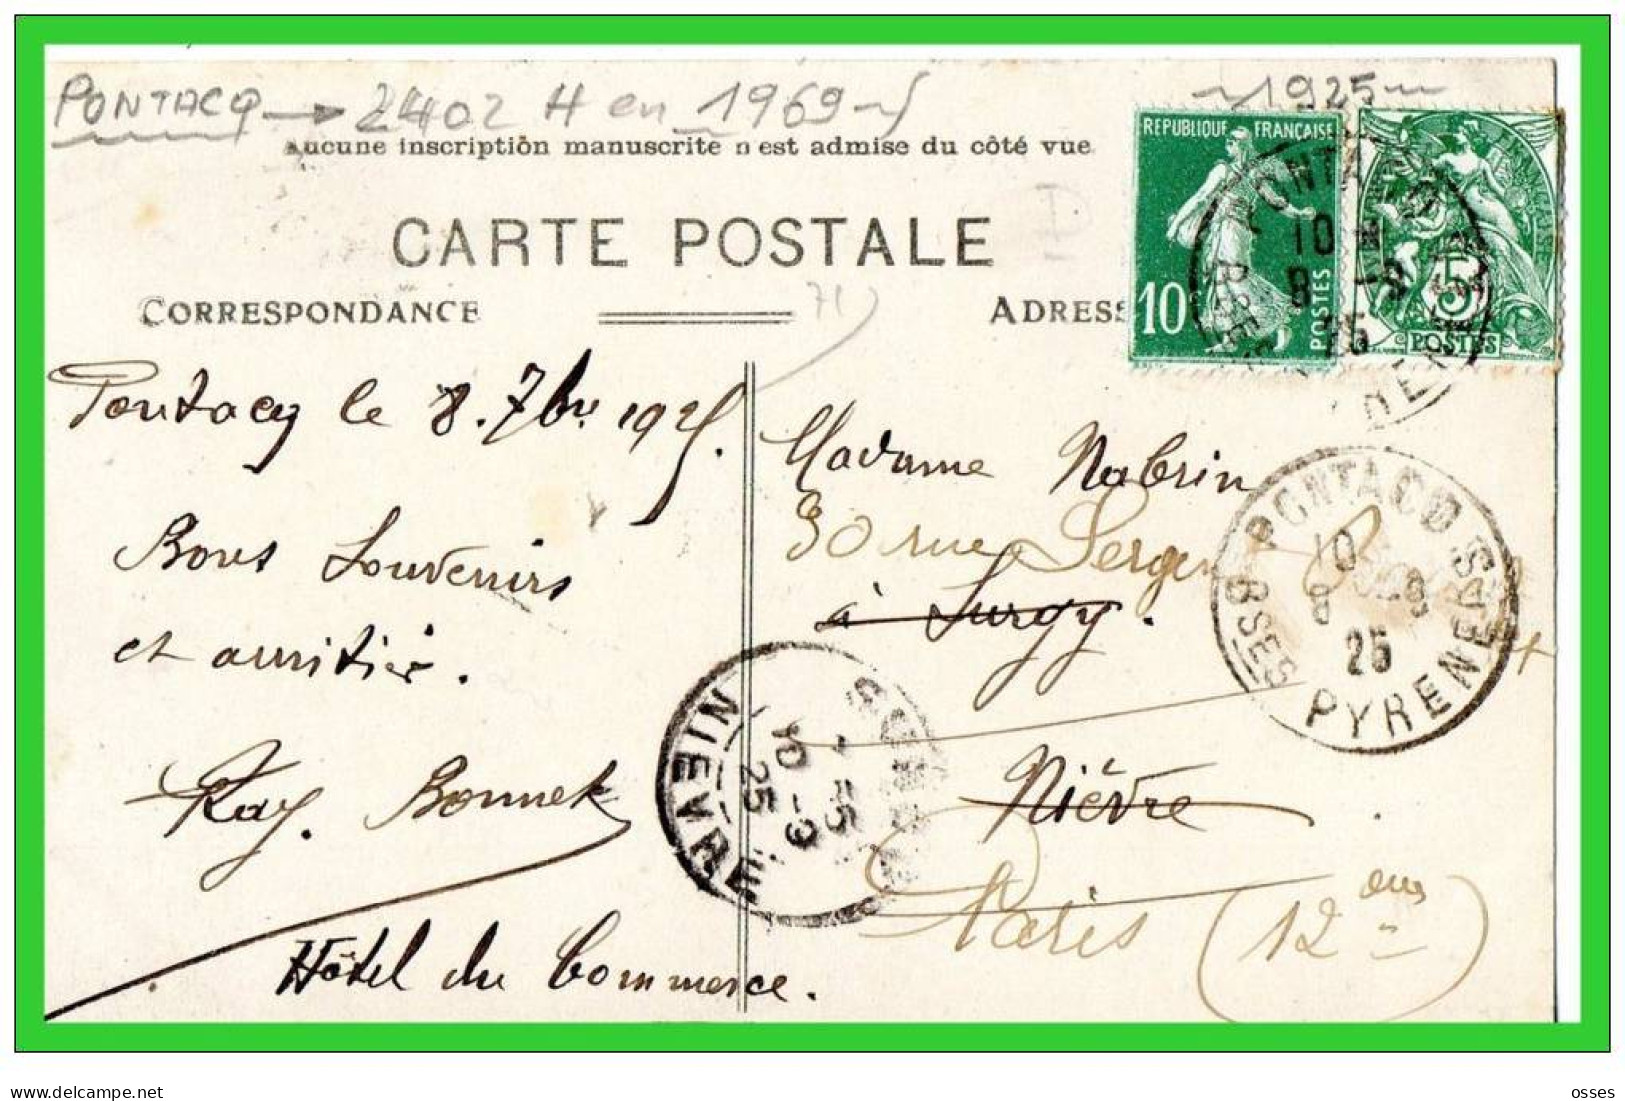 PONTACQ → 2402 H en 1969
~1925~
Aucune inscription manuscrite n'est admise du côté vue
CARTE POSTALE
CORRESPONDANCE
ADRESS
REPUBLIQUE FRANÇAISE
10
POSTES
5
POSTES
PONTACQ
10
8 - 9
25
Pontacq le 8. 7bre 1925.
Bons Souvenirs
et amitiés.
Ray. Bonnet
Hôtel du Commerce.
Madame Nabrin
30 rue Sergent
à Surgy.
Nièvre
Paris (12 em
PONTACQ
10
8 - 9
25
BSES PYRENEES
NIEVRE
10 - 9
25
osses
delcampe.net